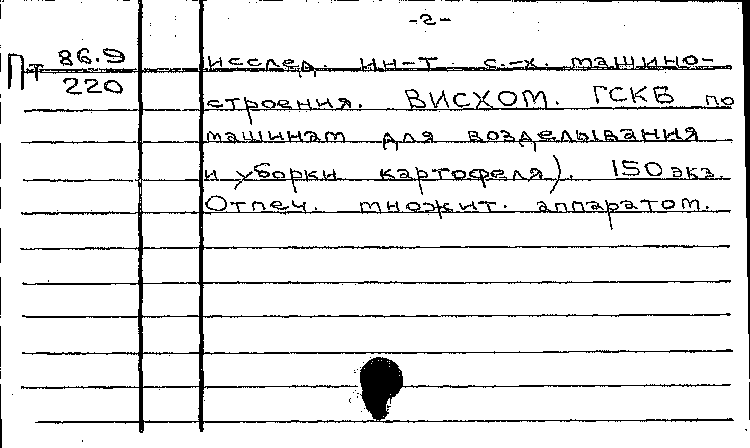 -2-
Пт 86.9
220
исслед. ин-т с.-х. машино-
строения. ВИСХОМ. ГСКБ по
машинам для возделывания
и уборки картофеля). 150 экз.
Отпеч. множит. аппаратом.